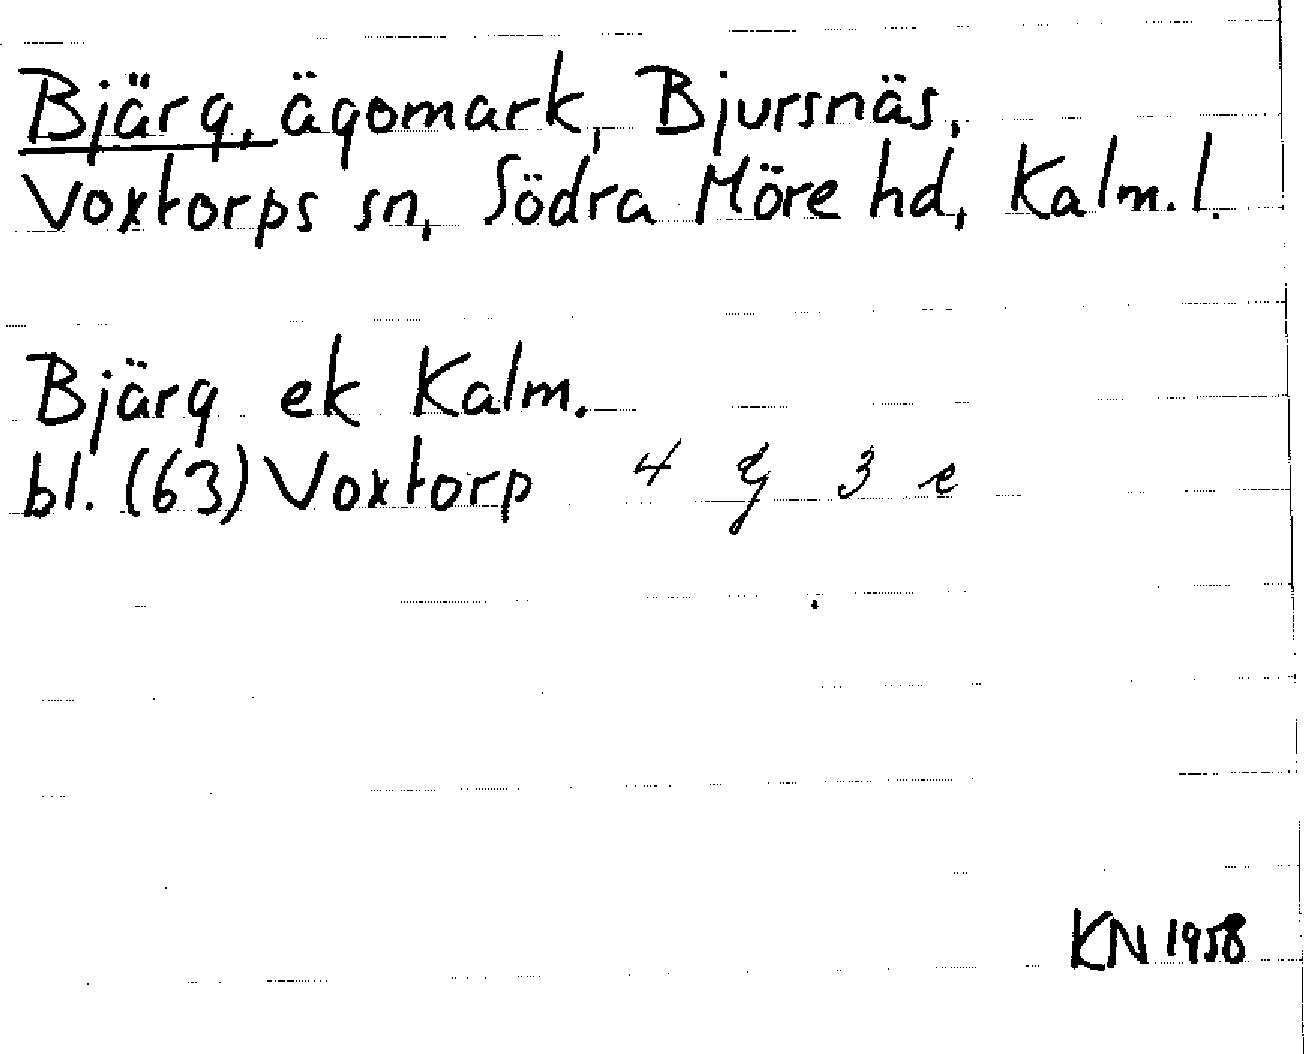 Bjärg, ägomark, Bjursnäs,
Voxtorps sn, Södra Möre hd, Kalm. l.
Bjärg ek Kalm.
bl. (63) Voxtorp 4 G 3 e
KN 1958